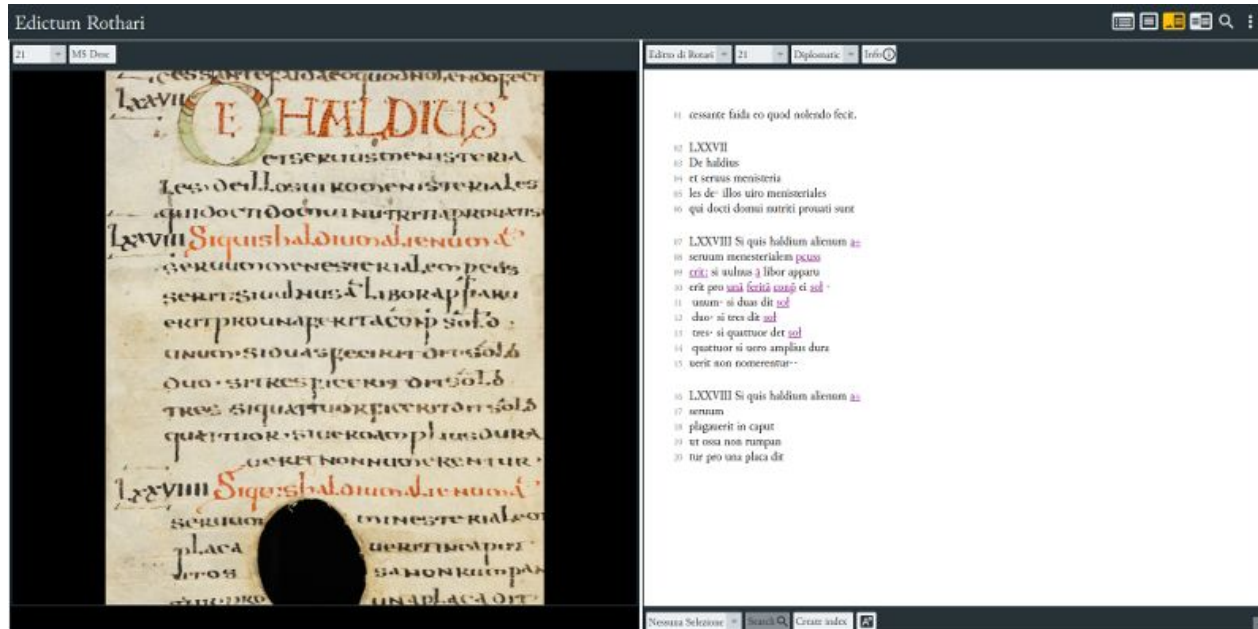 Edictum Rothari
21 MS Desc
Editto di Rotari 21 Diplomatic Info
cessante faida eo quod nolendo fecit
lxxvii
DE HALDIUS
et seruus menisteria
les. de illos uiro menisteriales
qui docti domui nutriti prouati s
lxxviii Si quis haldium alienum a÷
seruum menesterialem pcus
serit: si uulnus a÷ libor apparu
erit pro una ferita conp̄ sol̄d.
unum. si duas fecerit dit sol̄d
duo. si tres ficerit dit sol̄d
tres si quattuor ficerit dit sol̄d
quattuor. si uero amplius dura
uerit non numerentur.
lxxviiii Si quis haldium alienum a÷
seruum menesteriale
placa uerit in caput
ut os sa non rumpan
tur pro una placa dit
01 cessante faida eo quod nolendo fecit.
02 LXXVII
03 De haldius
04 et seruus menisteria
05 les de· illos uiro menisteriales
06 qui docti domui nutriti prouati sunt
07 LXXVIII Si quis haldium alienum a÷
08 seruum menesterialem pcuss
09 erit: si uulnus ā libor apparu
10 erit pro unā feritā conp̄ ei sol̄ ·
11 unum· si duas dit sol̄
12 duo· si tres dit sol̄
13 tres· si quattuor det sol̄
14 quattuor si uero amplius dura
15 uerit non nomerentur··
16 LXXVIIII Si quis haldium alienum a÷
17 seruum
18 plagauerit in caput
19 ut ossa non rumpan
20 tur pro una placa dit
Nessuna Selezione Search Create index